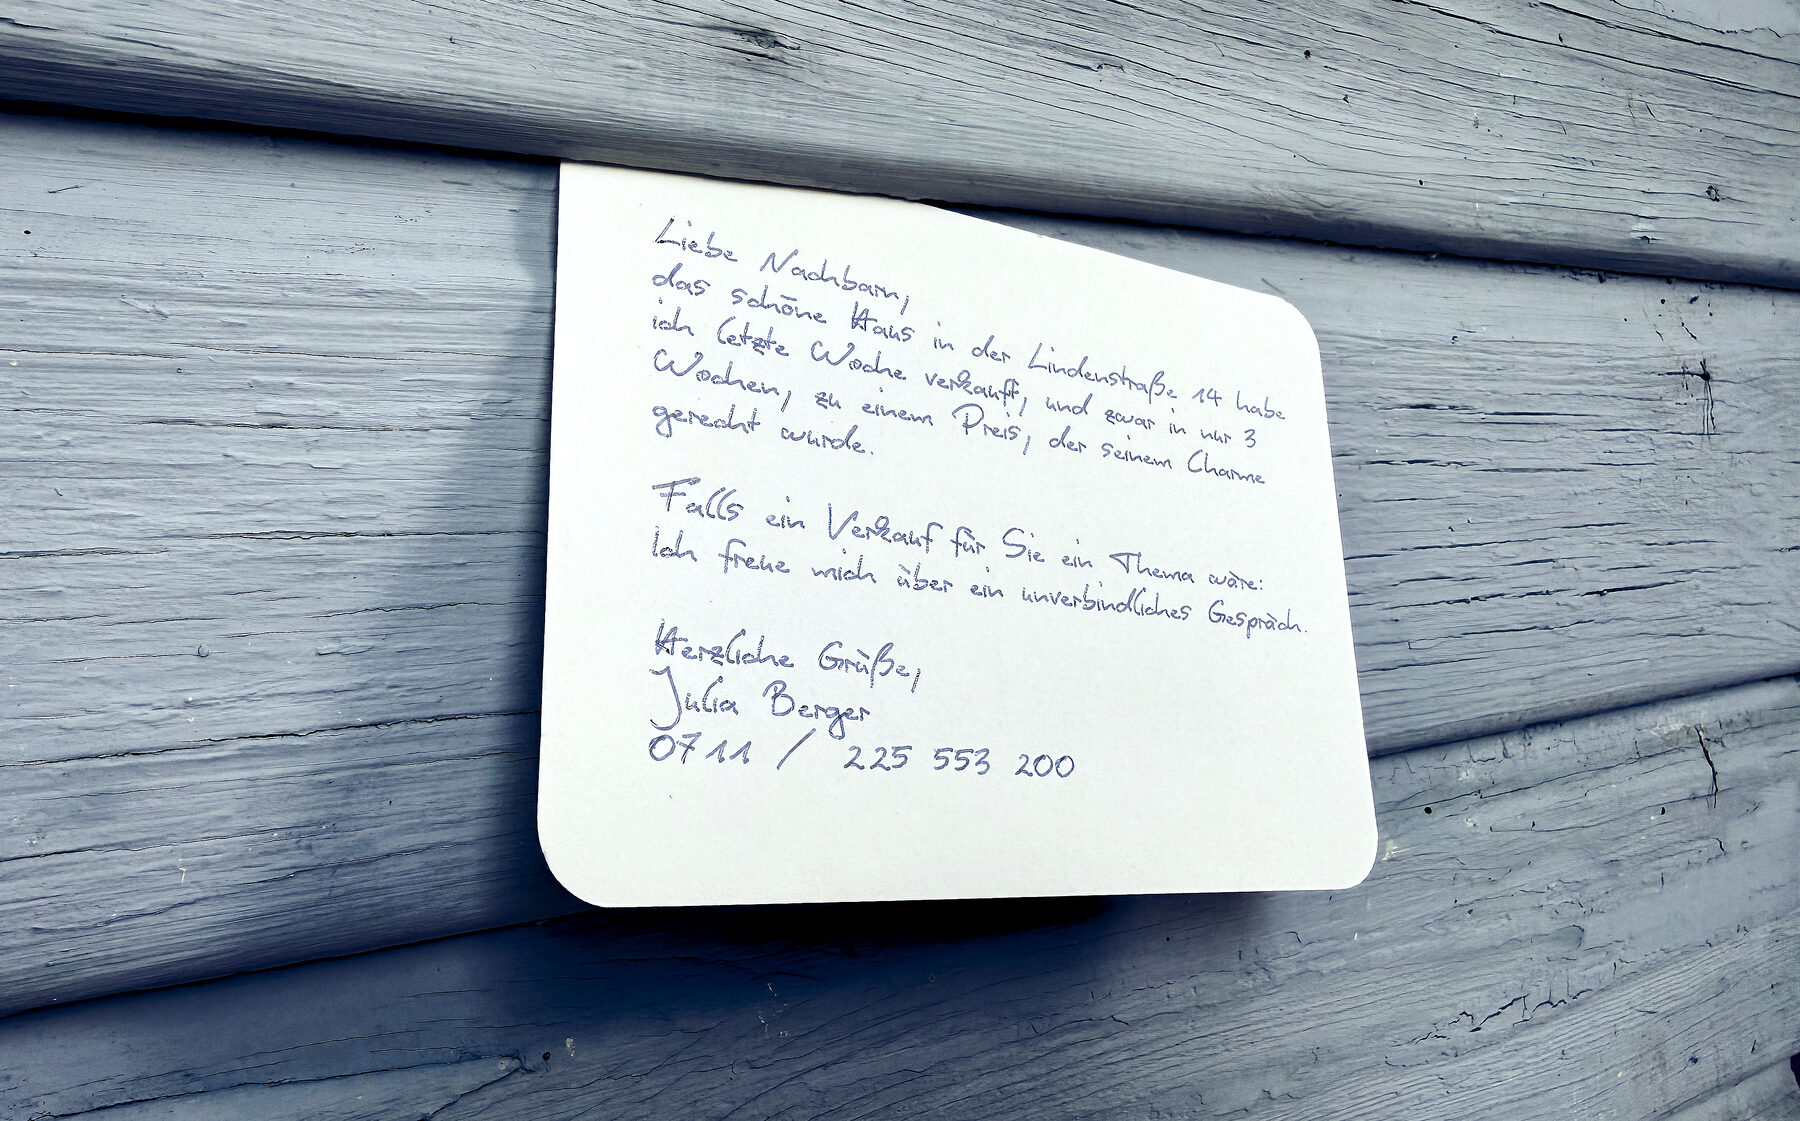 Liebe Nachbarn,
das schöne Haus in der Lindenstraße 14 habe
ich letzte Woche verkauft, und zwar in nur 3
Wochen, zu einem Preis, der seinem Charme
gerecht wurde.
Falls ein Verkauf für Sie ein Thema wäre:
Ich freue mich über ein unverbindliches Gespräch.
Herzliche Grüße,
Julia Berger
0711 / 225 553 200